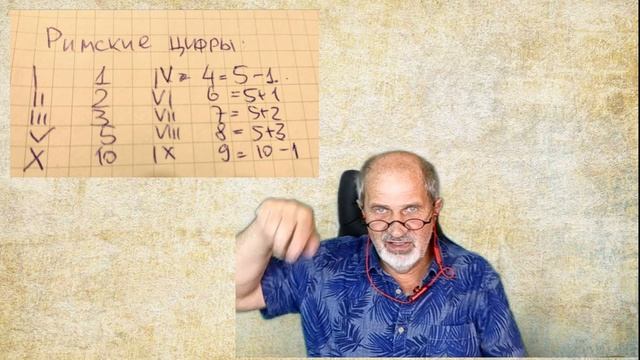 Римские цифры.
I 1 IV = 4 = 5-1.
II 2 VI 6 = 5+1
III 3 VII 7 = 5+2
V 5 VIII 8 = 5+3
X 10 IX 9 = 10-1